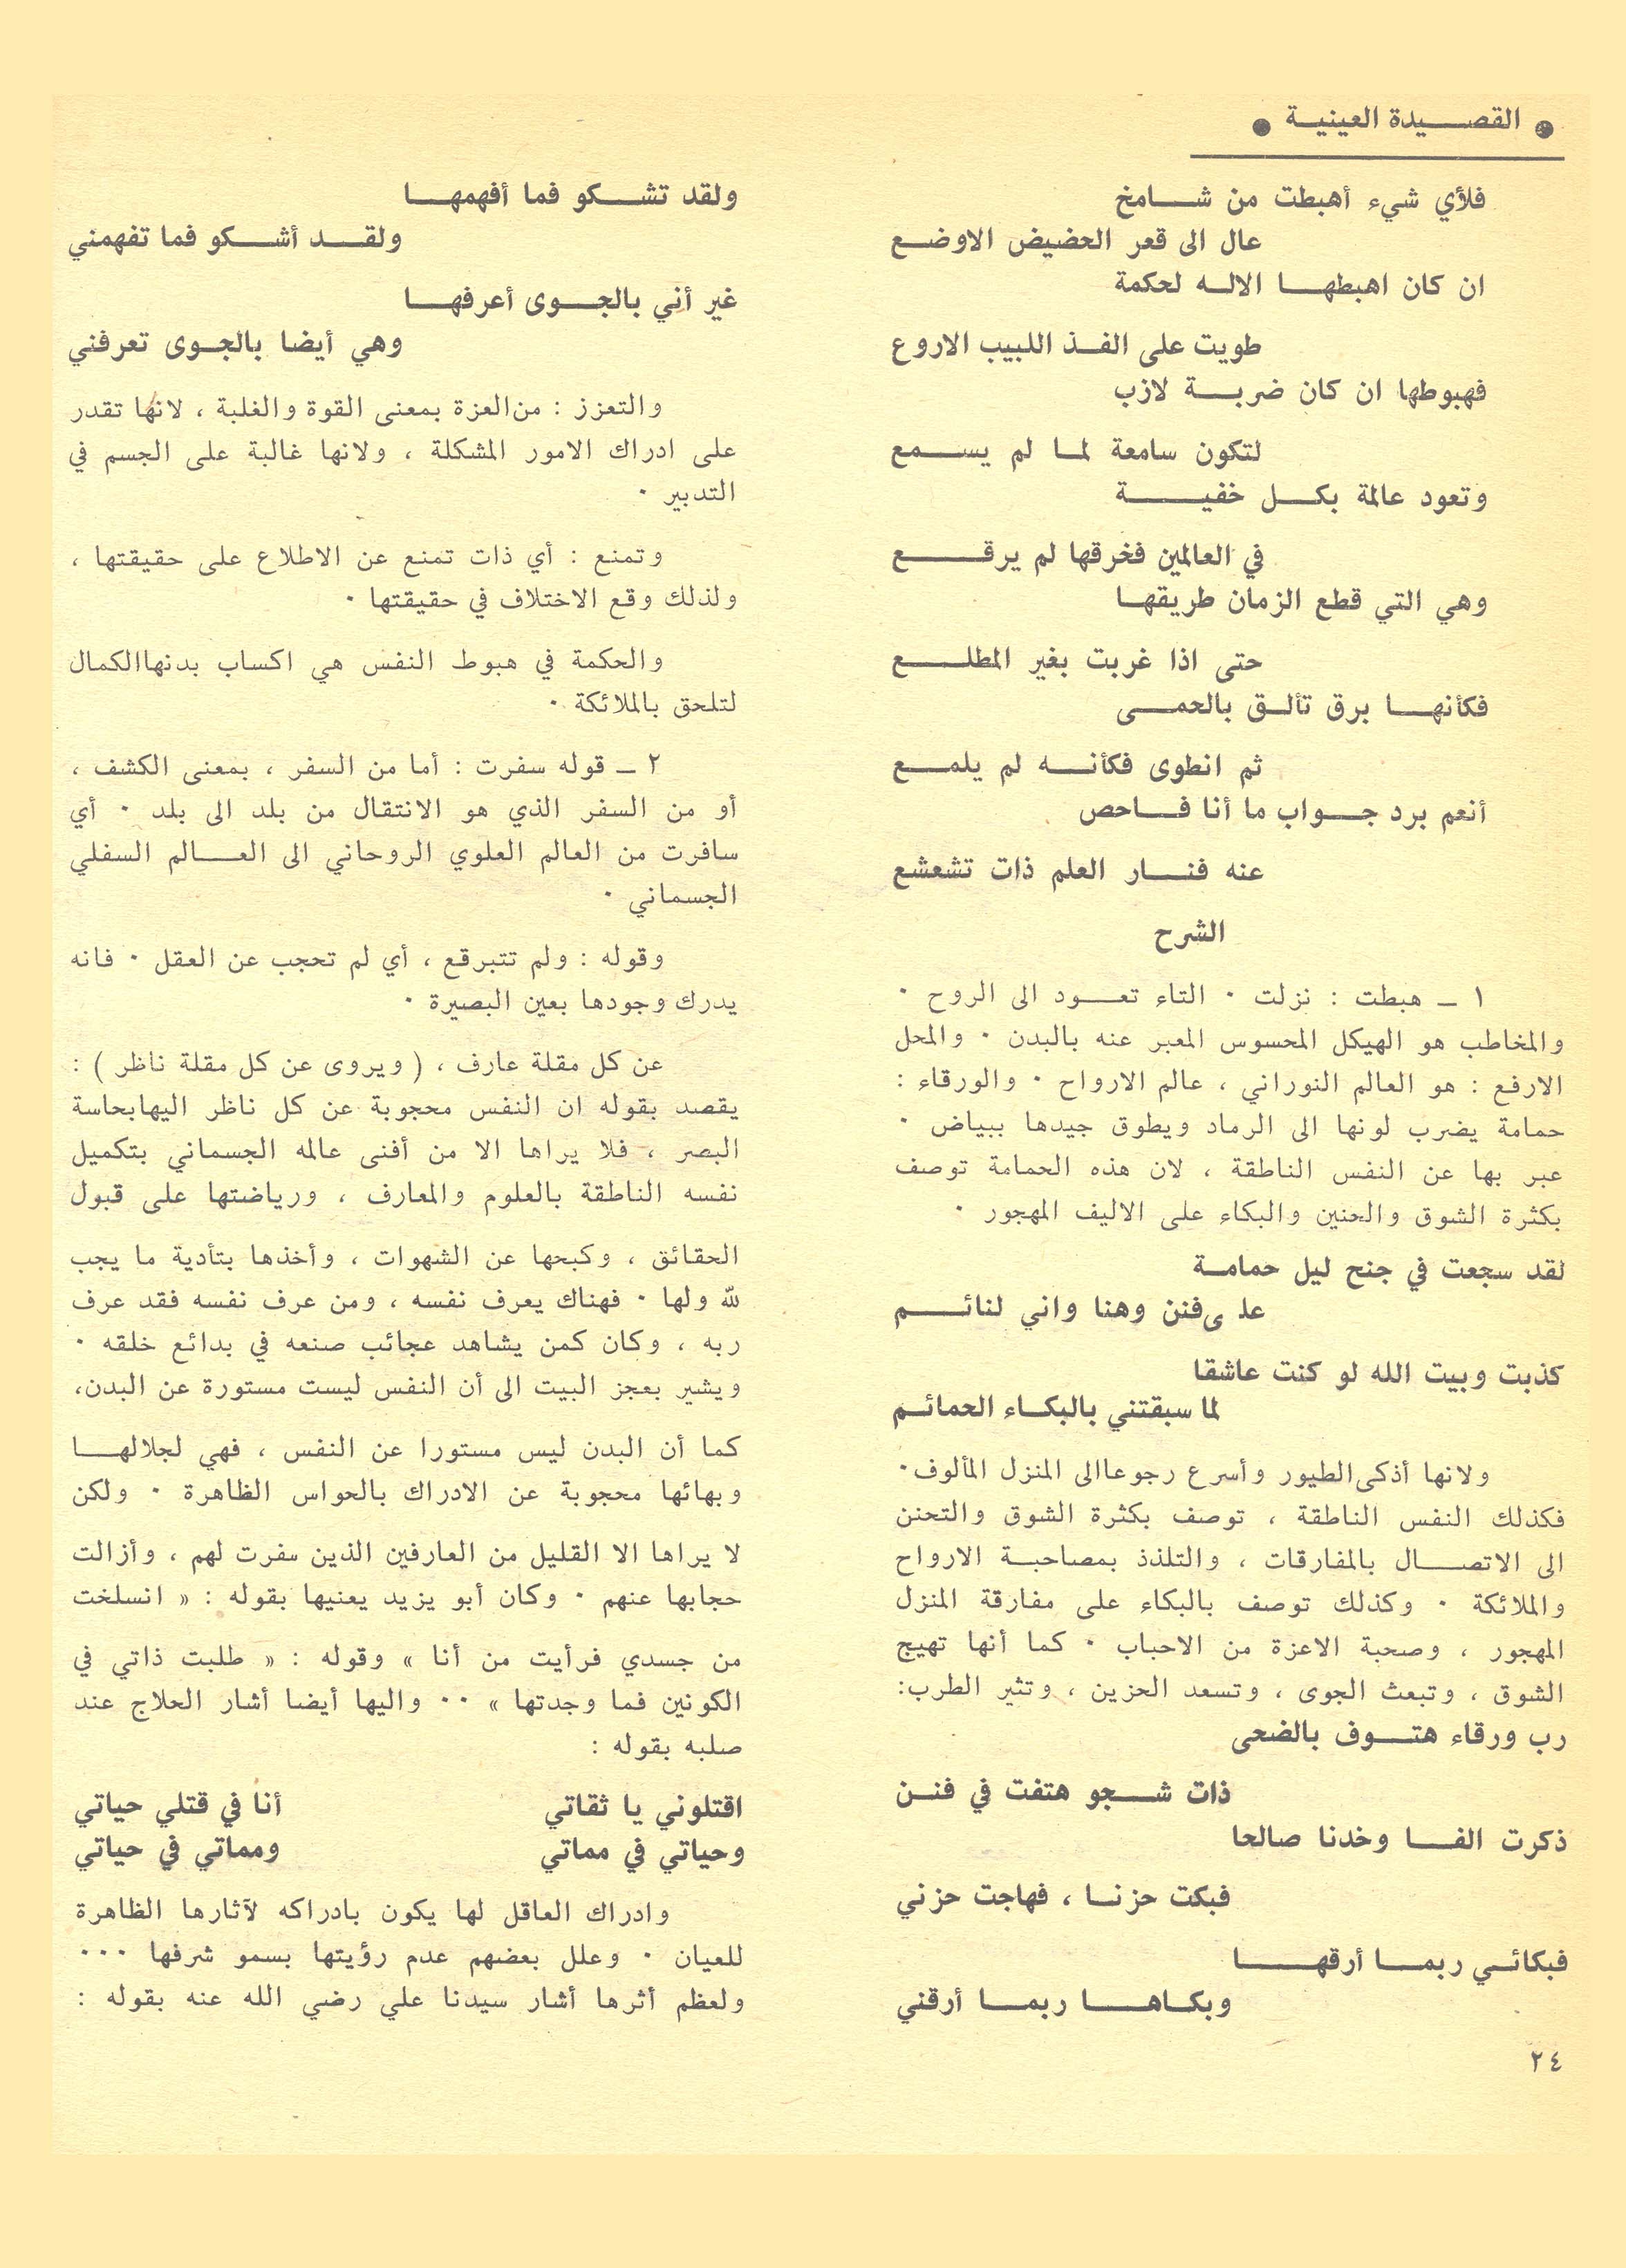 ● القصيدة العينية ●
فلأي شيء أهبطت من شامخ
عال الى قعر الحضيض الاوضع
ان كان اهبطها الاله لحكمة
طويت على الفذ اللبيب الاروع
فهبوطها ان كان ضربة لازب
لتكون سامعة لما لم يسمع
وتعود عالمة بكل خفية
في العالمين فخرقها لم يرقع
وهي التي قطع الزمان طريقها
حتى اذا غربت بغير المطلع
فكأنها برق تألق بالحمى
ثم انطوى فكأنه لم يلمع
أنعم برد جواب ما أنا فاحص
عنه فنار العلم ذات تشعشع
الشرح
١ ــ هبطت : نزلت ٠ التاء تعود الى الروح ٠
والمخاطب هو الهيكل المحسوس المعبر عنه بالبدن ٠ والمحل
الارفع : هو العالم النوراني ، عالم الارواح ٠ والورقاء :
حمامة يضرب لونها الى الرماد ويطوق جيدها ببياض ٠
عبر بها عن النفس الناطقة ، لان هذه الحمامة توصف
بكثرة الشوق والحنين والبكاء على الاليف المهجور ٠
لقد سجعت في جنح ليل حمامة
على فنن وهنا واني لنائم
كذبت وبيت الله لو كنت عاشقا
لما سبقتني بالبكاء الحمائم
ولانها أذكى الطيور وأسرع رجوعا الى المنزل المألوف٠
فكذلك النفس الناطقة ، توصف بكثرة الشوق والتحنن
الى الاتصال بالمفارقات ، والتلذذ بمصاحبة الارواح
والملائكة ٠ وكذلك توصف بالبكاء على مفارقة المنزل
المهجور ، وصحبة الاعزة من الاحباب ٠ كما أنها تهيج
الشوق ، وتبعث الجوى ، وتسعد الحزين ، وتثير الطرب:
رب ورقاء هتوف بالضحى
ذات شجو هتفت في فنن
ذكرت الفا وخدنا صالحا
فبكت حزنا ، فهاجت حزني
فبكائي ربما أرقها
وبكاها ربما أرقني
٢٤
ولقد تشكو فما أفهمها
ولقد أشكو فما تفهمني
غير أني بالجوى أعرفها
وهي أيضا بالجوى تعرفني
والتعزز : من العزة بمعنى القوة والغلبة ، لانها تقدر
على ادراك الامور المشكلة ، ولانها غالبة على الجسم في
التدبير ٠
وتمنع : أي ذات تمنع عن الاطلاع على حقيقتها ،
ولذلك وقع الاختلاف في حقيقتها ٠
والحكمة في هبوط النفس هي اكساب بدنها الكمال
لتلحق بالملائكة ٠
٢ ــ قوله سفرت : أما من السفر ، بمعنى الكشف ،
أو من السفر الذي هو الانتقال من بلد الى بلد ٠ أي
سافرت من العالم العلوي الروحاني الى العالم السفلي
الجسماني ٠
وقوله : ولم تتبرقع ، أي لم تحجب عن العقل ٠ فانه
يدرك وجودها بعين البصيرة ٠
عن كل مقلة عارف ، ( ويروى عن كل مقلة ناظر ) :
يقصد بقوله ان النفس محجوبة عن كل ناظر اليها بحاسة
البصر ، فلا يراها الا من أفنى عالمه الجسماني بتكميل
نفسه الناطقة بالعلوم والمعارف ، ورياضتها على قبول
الحقائق ، وكبحها عن الشهوات ، وأخذها بتأدية ما يجب
لله ولها ٠ فهناك يعرف نفسه ، ومن عرف نفسه فقد عرف
ربه ، وكان كمن يشاهد عجائب صنعه في بدائع خلقه ٠
ويشير بعجز البيت الى أن النفس ليست مستورة عن البدن،
كما أن البدن ليس مستورا عن النفس ، فهي لجلالها
وبهائها محجوبة عن الادراك بالحواس الظاهرة ٠ ولكن
لا يراها الا القليل من العارفين الذين سفرت لهم ، وأزالت
حجابها عنهم ٠ وكان أبو يزيد يعنيها بقوله : « انسلخت
من جسدي فرأيت من أنا » وقوله : « طلبت ذاتي في
الكونين فما وجدتها » ٠٠ واليها أيضا أشار الحلاج عند
صلبه بقوله :
اقتلوني يا ثقاتي أنا في قتلي حياتي
وحياتي في مماتي ومماتي في حياتي
وادراك العاقل لها يكون بادراكه لآثارها الظاهرة
للعيان ٠ وعلل بعضهم عدم رؤيتها بسمو شرفها ٠٠٠
ولعظم أثرها أشار سيدنا علي رضي الله عنه بقوله :